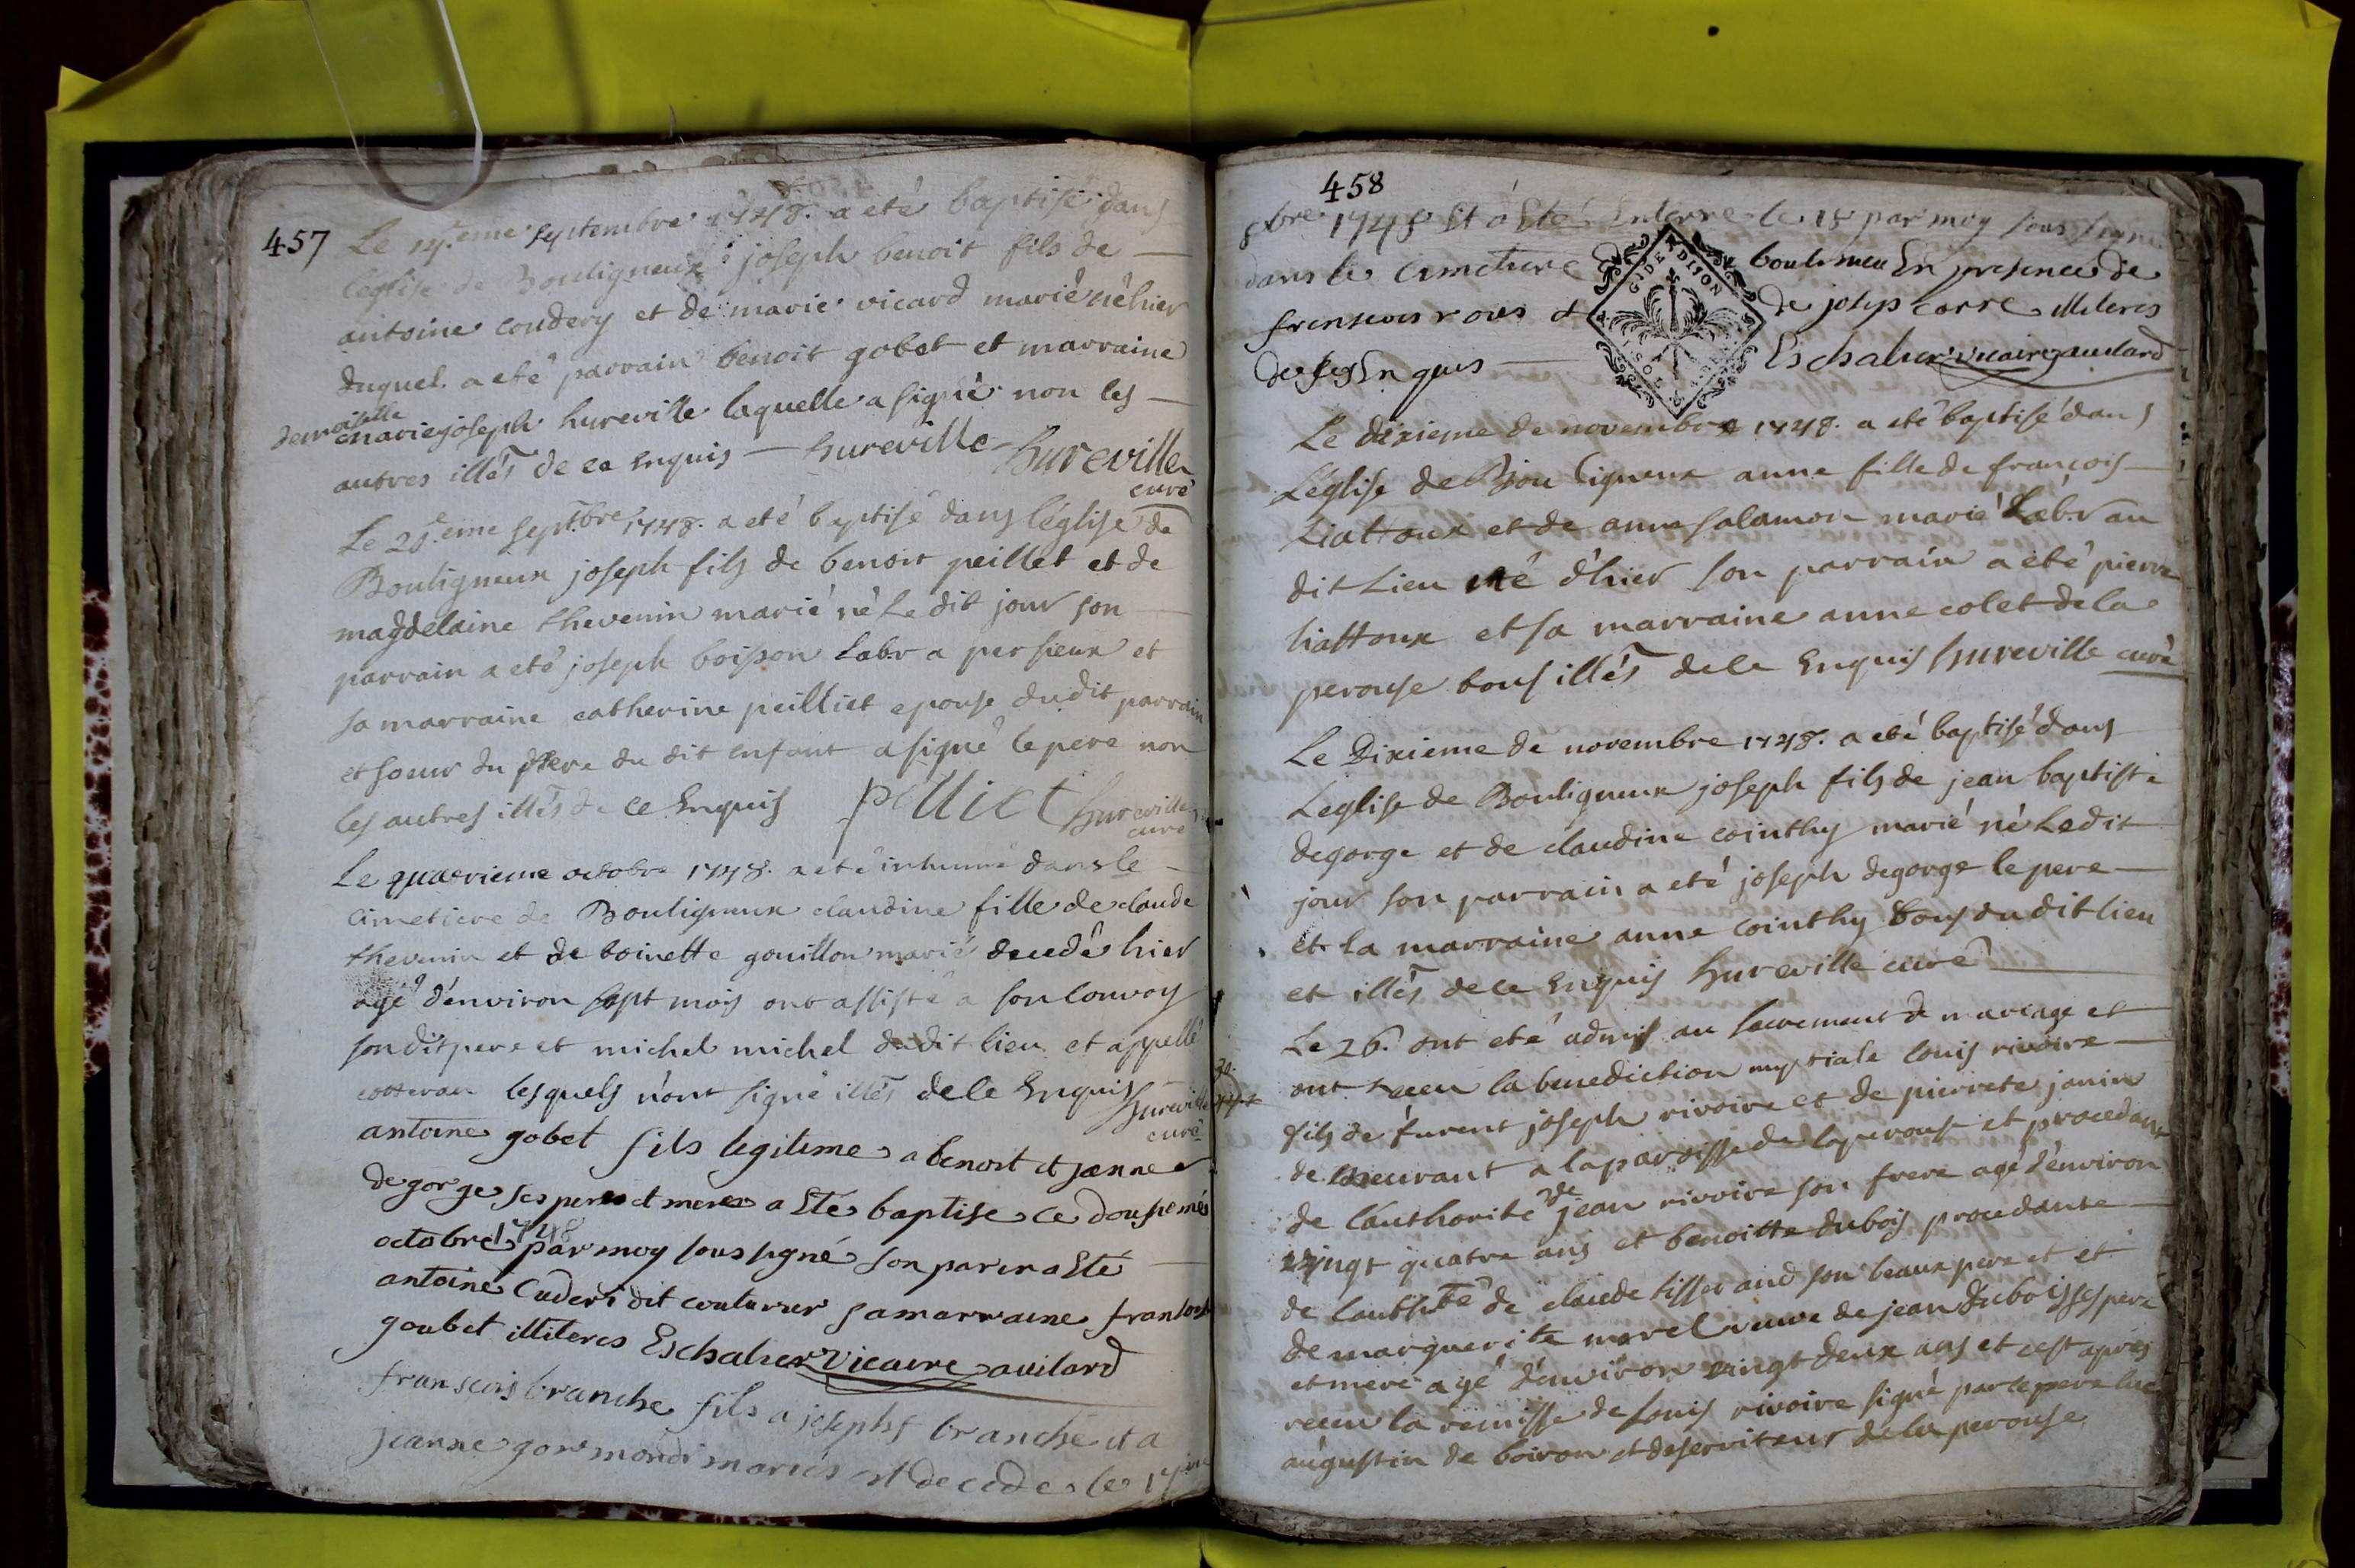 457
Le 14.eme septembre 1748. a eté baptisé dans
l'eglise de Bouligneux joseph benoit fils de
antoine coudery et de marie vicard marié né hier
duquel a eté parrain benoit gobet et marraine
demoiselle
marie joseph hureville laquelle a signé non les
autres illés de ce enquis — hureville hureville
curé
Le 21.eme septbre 1748. a eté baptisé dans l'église de
Bouligneux joseph fils de benoit peillet et de
magdelaine thevenin marié né Le dit jour son
parrain a eté joseph boisson Labr a persieux et
sa marraine catherine peilliet epouse dudit parrain
et soeur du pere du dit enfant a signé le pere non
les autres illés de ce Enquis pelliet hureville
curé
Le quatrieme octobre 1748. a eté inhumé dans le
cimetiere de Bouligneux claudine fille de claude
thevenin et de toinette gouillon marié decedé hier
agé d'environ sept mois ont assisté a son convoy
son dit pere et michel michel dudit lieu et appellé
cotteran lesquels n'ont signé illés de ce Enquis hureville
curé
antoine gobet fils legitime a benoit et jeanne
degorge ses peres et meres a Eté baptise ce dousieme
octobre 1748 par moy sous signé son parin a Eté
antoine Cuderi dit couturier sa marraine fransoise
goubet illiteres Eschalier vicaire auilard
fransois branche fils a josephs branche et a
jeanne gormondi mariés et decede le 17
458
8bre 1748 Et a Eté Enterre le 18 par moy sous signé
dans le cimetiere de boulimeu En presence de
G. DE DIJON
fransois rois et de josep carre illiteres
de ses Enquis — Eschalier vicaire auilard
Le dixieme de novembre 1748. a eté baptisé dans
L'eglise de Bouligneux anne fille de françois
Liattoux et de anne salamon marié Labr au
dit Lieu né d'hier son parrain a eté pierre
liattoux et sa marraine anne colet de la
perouse tous illés de ce Enquis hureville curé
Le Dixieme de novembre 1748. a eté baptisé dans
L'eglise de Bouligneux joseph fils de jean baptiste
degorge et de claudine cointhy marié né Ledit
jour son parrain a eté joseph degorge le pere
et la marraine anne cointhy tous du dit lieu
et illés de ce Enquis hureville curé
Le 26. ont eté admis au sacrement de mariage et
ont receu la benediction nuptiale louis rivoire
fils de furent joseph rivoire et de pierrete janin
demeurant a la paroisse de la perouse et procedant
de l'authorité de jean rivoire son frere agé d'environ
vingt quatre ans et benoitte dubois procedante
de l'authté de claude tisserand son beaux pere et et
de marguerite morel veuve de jean dubois ses pere
et mere agé d'environ vingt deux ans et cest apres
receu la remisse de louis rivoire signé par le pere luc
augustin de boiron et deserviteur de la perouse